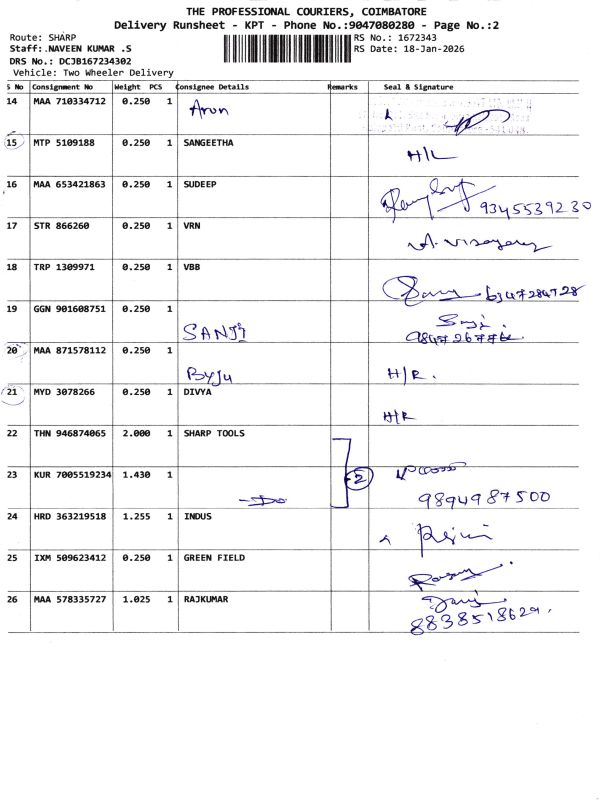 THE PROFESSIONAL COURIERS, COIMBATORE
Delivery Runsheet - KPT - Phone No.:9047080280 - Page No.:2
Route: SHARP RS No.: 1672343
Staff: NAVEEN KUMAR .S RS Date: 18-Jan-2026
DRS No.: DCJB167234302
Vehicle: Two Wheeler Delivery
S No Consignment No Weight PCS Consignee Details Remarks Seal & Signature
14 MAA 710334712 0.250 1 Arun
15 MTP 5109188 0.250 1 SANGEETHA H/L
16 MAA 653421863 0.250 1 SUDEEP 9345539230
17 STR 866260 0.250 1 VRN
18 TRP 1309971 0.250 1 VBB 6347284728
19 GGN 901608751 0.250 1 SANJI
20 MAA 871578112 0.250 1 BYJU H/R.
21 MYD 3078266 0.250 1 DIVYA H/R
22 THN 946874065 2.000 1 SHARP TOOLS
23 KUR 7005519234 1.430 1 -Do- 2 9894987500
24 HRD 363219518 1.255 1 INDUS
25 IXM 509623412 0.250 1 GREEN FIELD
26 MAA 578335727 1.025 1 RAJKUMAR 8838518629.